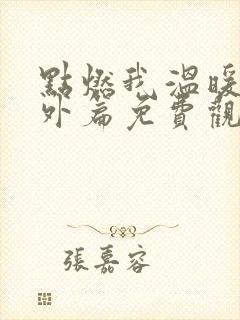 點燃我溫暖
外篇免費觀
張嘉容